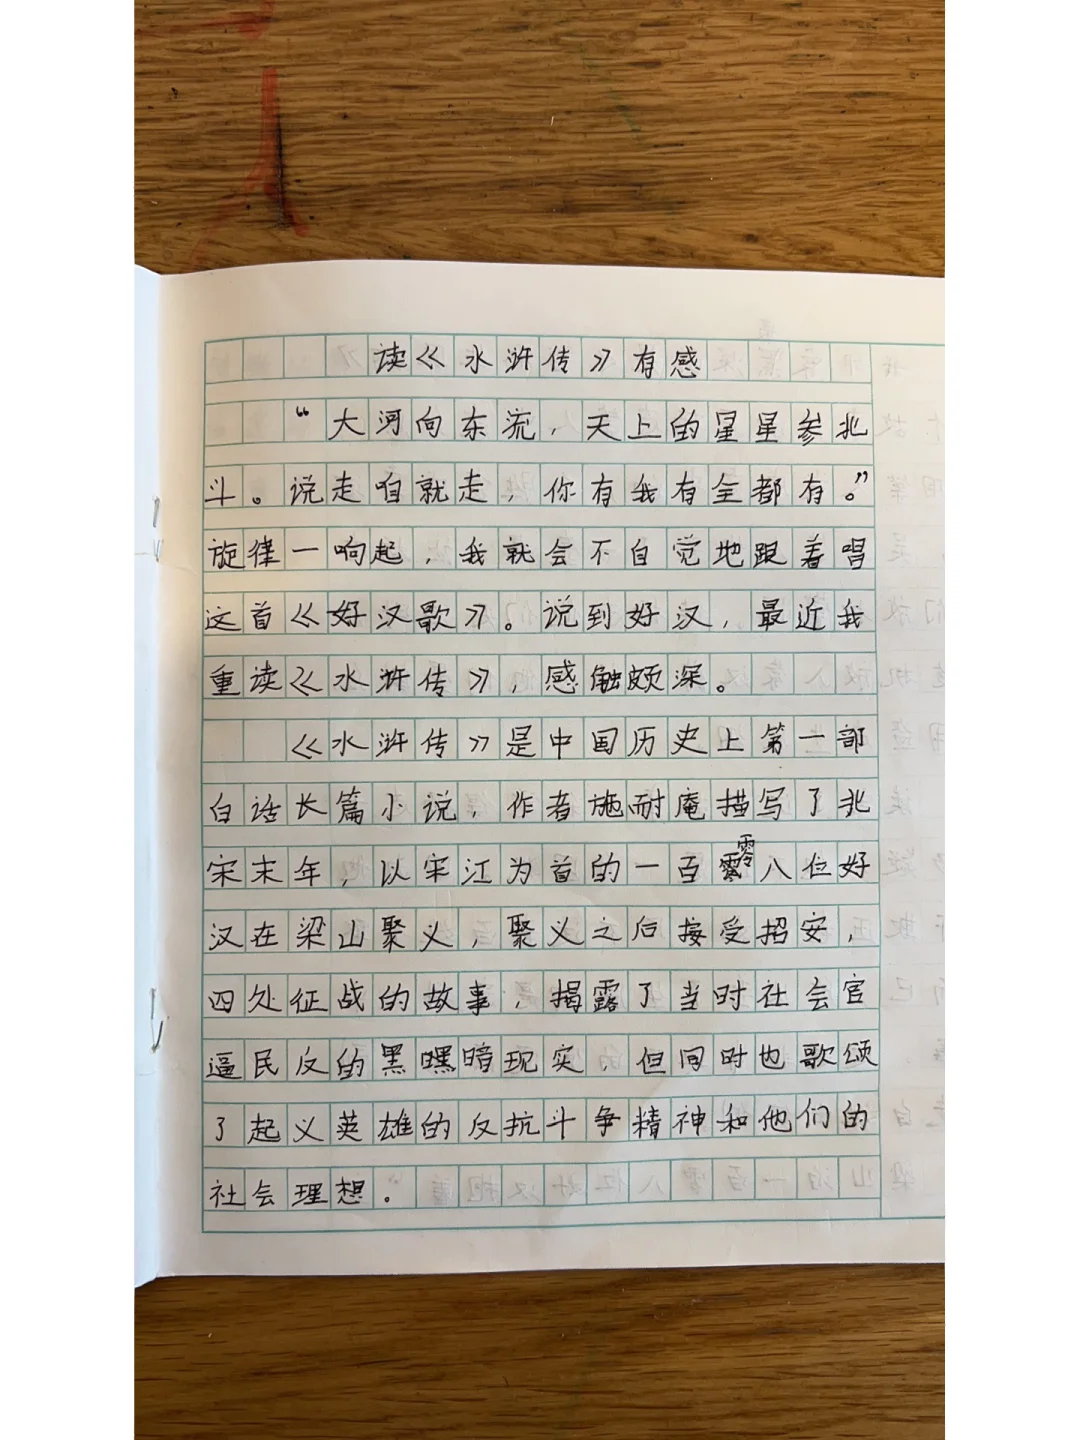 读《水浒传》有感
“大河向东流，天上的星星参北
斗。说走咱就走，你有我有全都有。”
旋律一响起，我就会不自觉地跟着唱
这首《好汉歌》。说到好汉，最近我
重读《水浒传》，感触颇深。
《水浒传》是中国历史上第一部
白话长篇小说，作者施耐庵描写了北
宋末年，以宋江为首的一百零八位好
汉在梁山聚义，聚义之后接受招安，
四处征战的故事，揭露了当时社会官
逼民反的黑嘿暗现实，但同时也歌颂
了起义英雄的反抗斗争精神和他们的
社会理想。